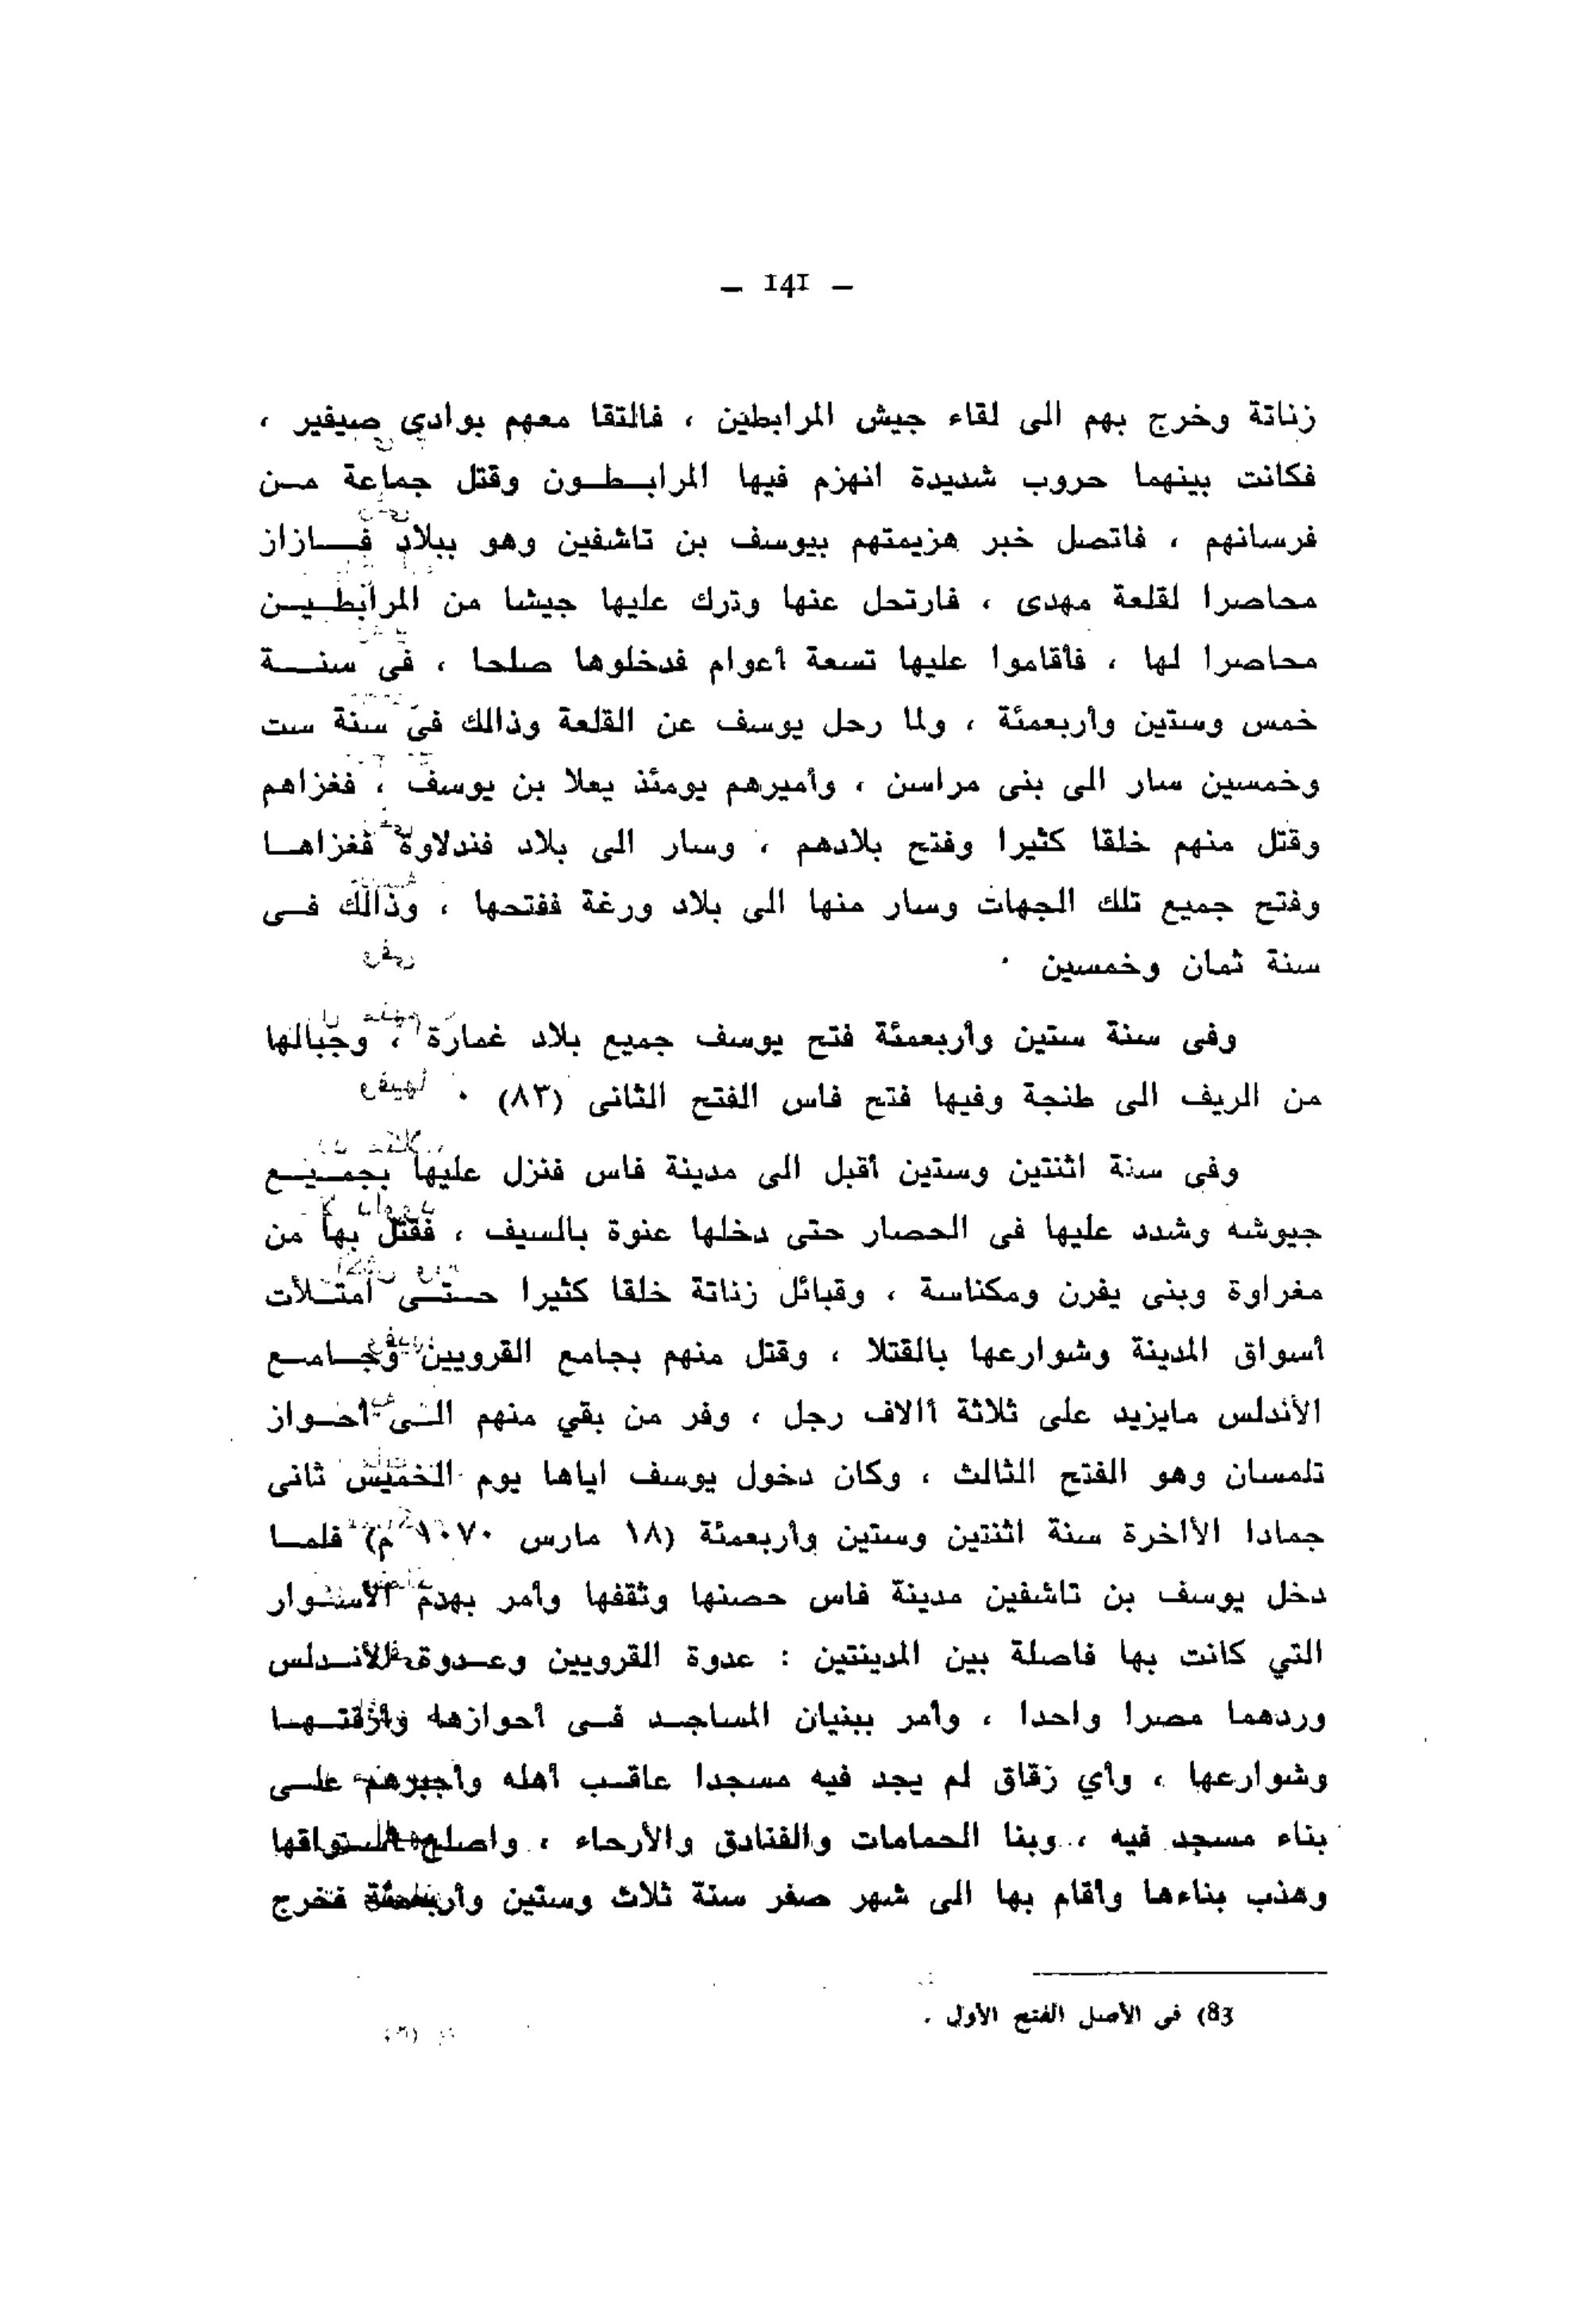 — 141 —
زناتة وخرج بهم الى لقاء جيش المرابطين ، فالتقا معهم بوادي صيفير ،
فكانت بينهما حروب شديدة انهزم فيها المرابطون وقتل جماعة من
فرسانهم ، فاتصل خبر هزيمتهم بيوسف بن تاشفين وهو ببلاد فازاز
محاصرا لقلعة مهدى ، فارتحل عنها وترك عليها جيشا من المرابطين
محاصرا لها ، فأقاموا عليها تسعة أعوام فدخلوها صلحا ، فى سنة
خمس وستين وأربعمئة ، ولما رحل يوسف عن القلعة وذالك فى سنة ست
وخمسين سار الى بنى مراسن ، وأميرهم يومئذ يعلا بن يوسف ، فغزاهم
وقتل منهم خلقا كثيرا وفتح بلادهم ، وسار الى بلاد فندلاوة فغزاها
وفتح جميع تلك الجهات وسار منها الى بلاد ورغة ففتحها ، وذالك فى
سنة ثمان وخمسين .
وفى سنة ستين وأربعمئة فتح يوسف جميع بلاد غمارة ، وجبالها
من الريف الى طنجة وفيها فتح فاس الفتح الثانى (٨٣) .
وفى سنة اثنتين وستين أقبل الى مدينة فاس فنزل عليها بجميع
جيوشه وشدد عليها فى الحصار حتى دخلها عنوة بالسيف ، فقتل بها من
مغراوة وبنى يفرن ومكناسة ، وقبائل زناتة خلقا كثيرا حتى امتلأت
أسواق المدينة وشوارعها بالقتلا ، وقتل منهم بجامع القرويين وجامع
الأندلس مايزيد على ثلاثة أالاف رجل ، وفر من بقي منهم الى أحواز
تلمسان وهو الفتح الثالث ، وكان دخول يوسف اياها يوم الخميس ثانى
جمادا الأاخرة سنة اثنتين وستين وأربعمئة (١٨ مارس ١٠٧٠ م) فلما
دخل يوسف بن تاشفين مدينة فاس حصنها وثقفها وأمر بهدم الأسوار
التي كانت بها فاصلة بين المدينتين : عدوة القرويين وعدوة الأندلس
وردهما مصرا واحدا ، وأمر ببنيان المساجد فى أحوازها وأزقتها
وشوارعها ، وأي زقاق لم يجد فيه مسجدا عاقب أهله وأجبرهم على
بناء مسجد فيه ، وبنا الحمامات والفنادق والأرحاء ، وأصلح أسواقها
وهذب بناءها وأقام بها الى شهر صفر سنة ثلاث وستين وأربعمئة فخرج
83) فى الأصل الفتح الأول .